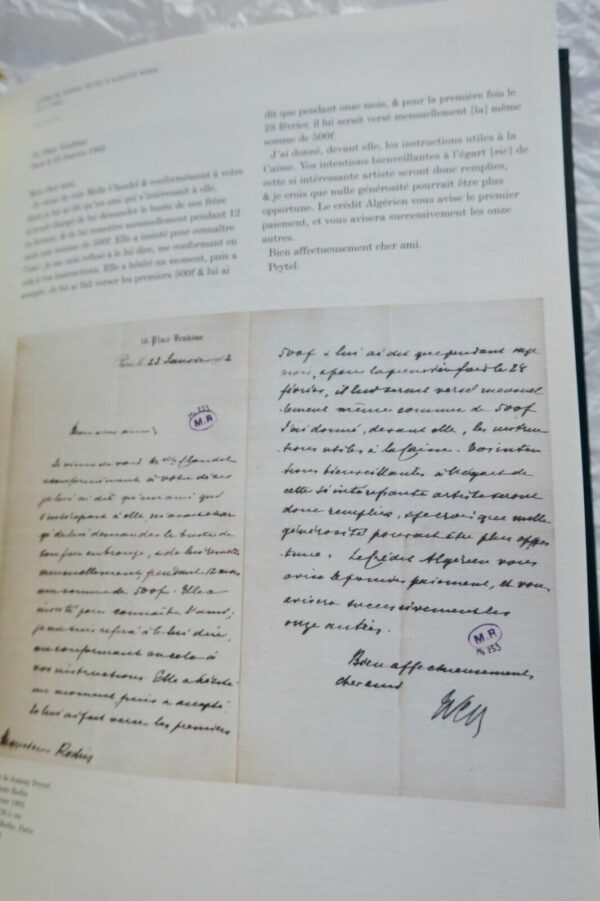 16, Place Vendôme
Mon cher ami,
Je viens de voir Melle Claudel & conformément à votre
désir je lui ai dit qu'un ami qui s'intéressait à elle,
m'avait chargé de lui demander le buste de son frère
en bronze, & de lui remettre mensuellement pendant 12
mois une somme de 500f. Elle a insisté pour connaître
l'ami ; je me suis refusé à le lui dire, me conformant en
cela à vos instructions. Elle a hésité un moment, puis a
accepté. Je lui ai fait verser les premiers 500f & lui ai
dit que pendant onze mois, & pour la première fois le
28 février, il lui serait versé mensuellement [la] même
somme de 500f.
J'ai donné, devant elle, les instructions utiles à la
Caisse. Vos intentions bienveillantes à l'égart [sic] de
cette si intéressante artiste seront donc remplies,
& je crois que nulle générosité pourrait être plus
opportune. Le crédit Algérien vous avise le premier
paiement, et vous avisera successivement les onze
autres.
Bien affectueusement cher ami.
Peytel.
16, Place Vendôme
Paris le 23 Janvier
M.R
Mon cher ami,
Je viens de voir Melle Claudel
conformément à votre désir
je lui ai dit qu'un ami qui
s'intéressait à elle, m'avait chargé
de lui demander le buste de
son frère en bronze, & de lui remettre
mensuellement, pendant 12 mois
une somme de 500f. Elle a
insisté pour connaître l'ami ;
je me suis refusé à le lui dire,
me conformant en cela à
vos instructions. Elle a hésité
un moment, puis a accepté.
Je lui ai fait verser les premiers
Rodin
500f & lui ai dit que pendant onze
mois, & pour la première fois le 28
février, il lui serait versé mensuel
lement même somme de 500f
J'ai donné, devant elle, les instruc
tions utiles à la Caisse. Vos inten
tions bienveillantes à l'égart de
cette si intéressante artiste seront
donc remplies, & je crois que nulle
générosité pourrait être plus oppor
tune. Le Crédit Algérien vous
avise le premier paiement, et vous
avisera successivement les
onze autres.
M.R
Ms 333
Bien affectueusement
cher ami
de Joanny Peytel
Rodin, Paris